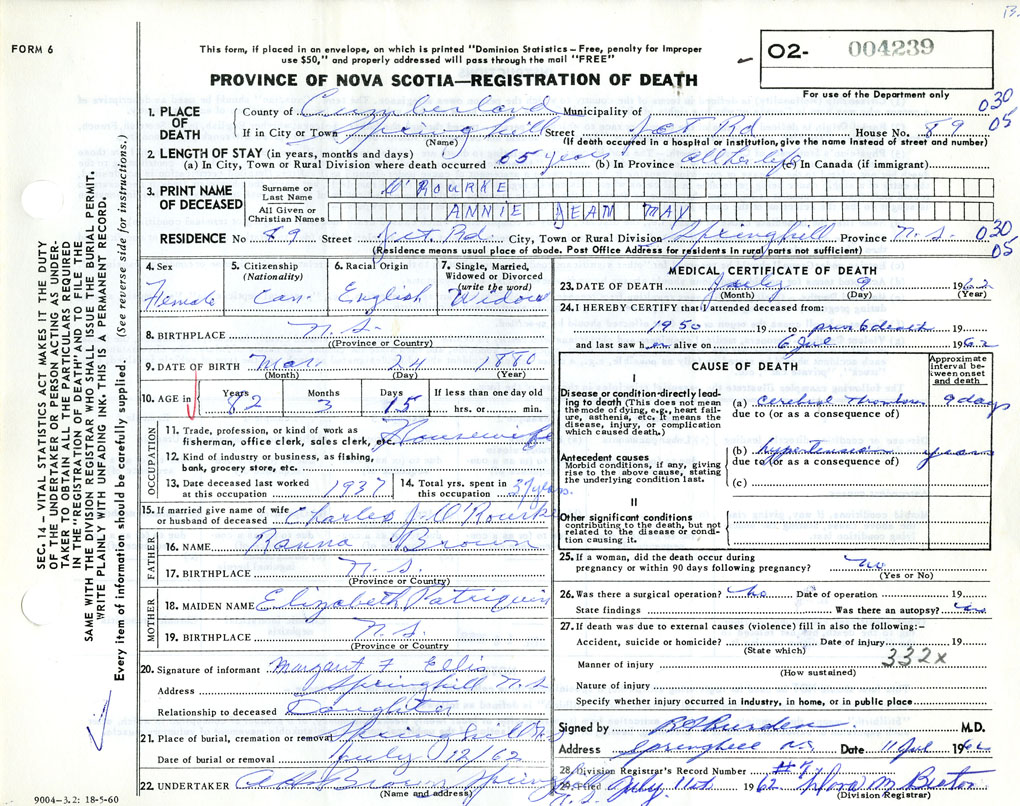 B.
FORM 6
This form, if placed in an envelope, on which is printed "Dominion Statistics–Free, penalty for improper
use $50," and properly addressed will pass through the mail "FREE"
PROVINCE OF NOVA SCOTIA—REGISTRATION OF DEATH
O2- 004239
For use of the Department only
SEC. 14 – VITAL STATISTICS ACT MAKES IT THE DUTY
OF THE UNDERTAKER OR PERSON ACTING AS UNDER-
TAKER TO OBTAIN ALL THE PARTICULARS REQUIRED
IN THE "REGISTRATION OF DEATH" AND TO FILE THE
SAME WITH THE DIVISION REGISTRAR WHO SHALL ISSUE THE BURIAL PERMIT.
WRITE PLAINLY WITH UNFADING INK. THIS IS A PERMANENT RECORD.
Every item of information should be carefully supplied. (See reverse side for instructions.)
1. PLACE OF DEATH
County of Cumberland Municipality of
030
If in City or Town Springhill Street Jct Rd House No. 89
05
(Name) (If death occurred in a hospital or institution, give the name instead of street and number)
2. LENGTH OF STAY (in years, months and days)
(a) In City, Town or Rural Division where death occurred 65 years (b) In Province all her life (c) In Canada (if immigrant)
3. PRINT NAME OF DECEASED
Surname or Last Name O'ROURKE
All Given or Christian Names ANNIE JEAN MAY
RESIDENCE No 89 Street Jct. Rd. City, Town or Rural Division Springhill Province N.S.
030
05
(Residence means usual place of abode. Post Office Address for residents in rural parts not sufficient)
4. Sex Female
5. Citizenship (Nationality) Can.
6. Racial Origin English
7. Single, Married, Widowed or Divorced (write the word) Widow
8. BIRTHPLACE N.S.
(Province or Country)
9. DATE OF BIRTH Mar. 24 1880
(Month) (Day) (Year)
10. AGE in Years 82 Months 3 Days 15 If less than one day old hrs. or min.
OCCUPATION
11. Trade, profession, or kind of work as fisherman, office clerk, sales clerk, etc. Housewife
12. Kind of industry or business, as fishing, bank, grocery store, etc.
13. Date deceased last worked at this occupation 1937
14. Total yrs. spent in this occupation 37 years.
15. If married give name of wife or husband of deceased Charles J. O'Rourke
FATHER
16. NAME Brown
17. BIRTHPLACE N.S.
(Province or Country)
MOTHER
18. MAIDEN NAME Elizabeth Patriquin
19. BIRTHPLACE N.S.
(Province or Country
20. Signature of informant Margaret F Ellis
Address Springhill N.S
Relationship to deceased Daughter
21. Place of burial, cremation or removal Springhill N.S
Date of burial or removal July 12/62
22. UNDERTAKER A H Brown Springhill N.S.
(Name and address)
9004–3.2: 18-5-60
MEDICAL CERTIFICATE OF DEATH
23. DATE OF DEATH July 9 1962
(Month) (Day) (Year)
24. I HEREBY CERTIFY that I attended deceased from:
1950 19 to death 19
and last saw her alive on 6 Jul 1962
CAUSE OF DEATH
Approximate interval between onset and death
I
Disease or condition directly leading to death (This does not mean the mode of dying, e.g., heart failure, asthenia, etc. It means the disease, injury, or complication which caused death.)
(a) Cerebral Thrombosis 9 days
due to (or as a consequence of)
Antecedent causes
Morbid conditions, if any, giving rise to the above cause, stating the underlying condition last.
(b) hypertension years
due to (or as a consequence of)
(c)
II
Other significant conditions
contributing to the death, but not related to the disease or condition causing it.
25. If a woman, did the death occur during pregnancy or within 90 days following pregnancy? No
(Yes or No)
26. Was there a surgical operation? No Date of operation 19
State findings Was there an autopsy? No
27. If death was due to external causes (violence) fill in also the following:–
Accident, suicide or homicide? Date of injury 19
(State which)
332x
Manner of injury
(How sustained)
Nature of injury
Specify whether injury occurred in industry, in home, or in public place
Signed by M.D.
Address Springhill N.S. Date 11 Jul 1962
28. Division Registrar's Record Number #7
29. Filed July 11th 1962 Flora M.
(Division Registrar)